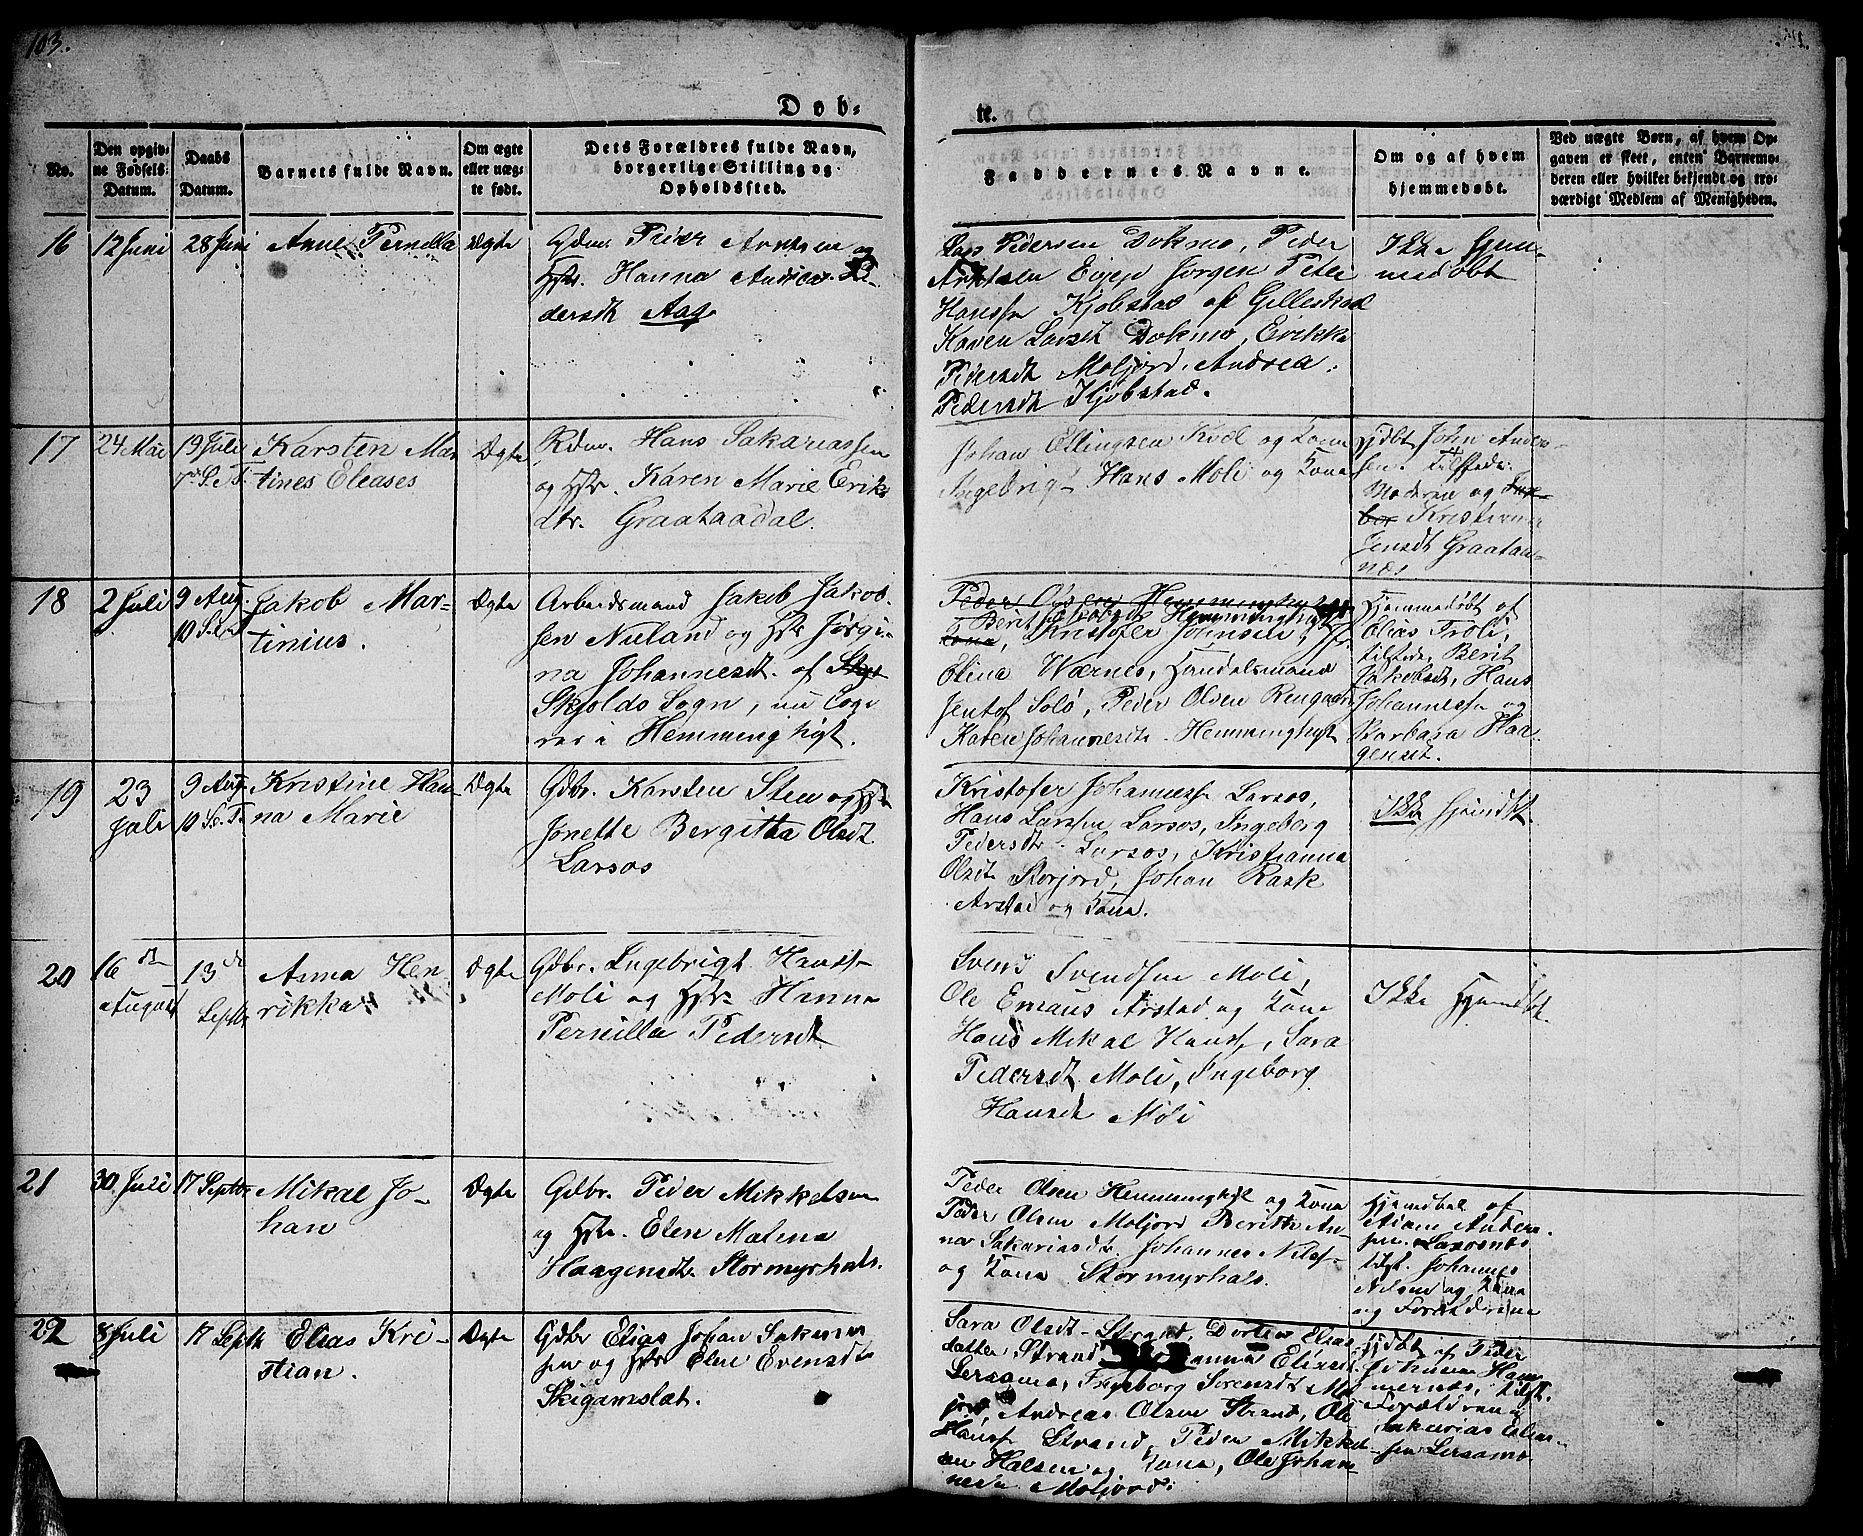 103.
Døb-
te.
No.
Den opgiv-
ne Fødsels-
Datum.
Daabs
Datum.
Barnets fulde Navn.
Om ægte
eller uæg-
te født.
Dets Forældres fulde Navn,
borgerlige Stilling og
Opholdssted.
Faddernes Navne.
Om og af hvem
hjemmedøbt.
Ved uægte Børn, af hvem Op-
gaven er skeet, enten Barnemo-
deren eller hvilket bekjendt og tro-
værdigt Medlem af Menigheden.
16
12 Juni
28 Juni
Anne Pernilla
Ægte
Gdm. Peder Arntsen og
Hstr. Hanna Andrea Pe-
dersdt Aag
Lars Pedersen Dokmo, Peder
Arntsen Evjen Jørgen Peter
Hanssen Kjøbstad af Gilleskaal
Karen Larsdt Dokmo, Erikka
Pedersdt Moljord. Andrea
Pedersdt Kjøbstad.
Ikke Hjem-
medøbt
17
24 Mai
19 Juli
7 S. e. T.
Karsten Mar-
tines Eleases
Ægte
Rdm. Hans Sakariassen
og Hstr. Karen Marie Eriks
dtr. Graataadal.
Johan Ellingsen Kvæl og Kona
Ingebrigt Hans Moli og Kona
Hjdbt John Ander-
sen. Tilstede:
Moderen og
Kristianna
Jensdt Graatan-
næs
18
2 Juli
9 Aug.
10 S. e. T.
Jakob Mar-
tinius.
Ægte
Arbeidsmand Jakob Jakob-
sen Niland og Hstr Jørgi-
na Johannesdt. af
Skjolds Sogn, nu Loge-
rer i Hemminghygt.
Peder Olsen Hemminghygt
Berit Jakobsdt Hemminghygt
Kona, Kristofer Johnsen,
Elina Wærnes, Handelsmand
Jentof Solø, Peder Olsen Rengaard
Karen Johannesdt. Hemminghygt
Hjemmedøbt af
Elias Troli,
tilstede, Berit
Jakobsdt, Hans
Johannessen og
Barbara Haa-
gensdt.
19
23
Juli
9 Aug.
10 S. e. T.
Kristine Han-
na Marie
Ægte
Gdbr. Karsten Sten og Hstr
Jonette Bergitta Olsdt
Larsos
Kristofer Johannessen Larsos,
Hans Larssen Larsos, Ingeborg
Pedersdt. Larsos, Kristianna
Olsdt Storjord, Johan Rask
Arstad og Kona.
Ikke Hjemdbt.
20
16 de
August
13 de
Septbr
Anna Hen-
rikka
Ægte
Gdbr. Ingebrigt Hanss-
Moli og Hstr Hanna
Pernilla Pedersdt
Svend Svendsen Moli,
Ole Emaus Arstad og Kona
Hans Mikal Hanss, Sara
Pedersdt Moli, Ingeborg
Hansdt Moli
Ikke Hjemdbt.
21
30 Juli
17 Septbr
Mikal Jo-
han
Ægte
Gdbr. Peder Mikkelsen
og Hstr. Elen Matina
Haagensdt. Stormyrhals.
Peder Olsen Hemminghygt og Kona
Peder Olsen Moljord Berith An-
na Sakariasdt. Johannes Nilss-
og Kona Stormyrhals.
Hjemdbt af
Anders-
sen. Larsosnes
tilst. Johannes
Nilsen og Kona
og Forældrene
22
8 Juli
17 Septbr
Elias Kri-
stian.
Ægte
Gdbr Elias Johan Sakarias
sen og Hstr Elen Evensdt.
Skigamslæt.
Sara Olsdt. Strand, Dortea Elias
datter Strand Hanna Eliasdt
Lersamo, Ingeborg Sørensdt Mol-
jord, Andreas Olsen Strand, Ole
Hanss Strand, Peder Mikkel-
sen Halsen og Kona, Ole Johan-
nesen Moljord.
Hjdbt af Peder
Johansen Ham-
mernes, tilst.
Forældrene
Sakarias Elias-
sen Lersamo